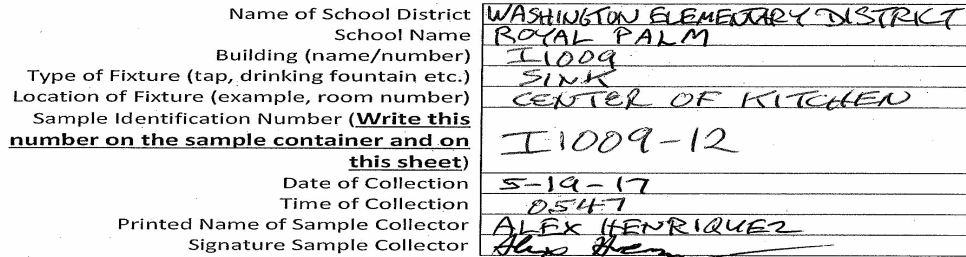 Name of School District WASHINGTON ELEMENTARY DISTRICT
School Name ROYAL PALM
Building (name/number) I1009
Type of Fixture (tap, drinking fountain etc.) SINK
Location of Fixture (example, room number) CENTER OF KITCHEN
Sample Identification Number (Write this
number on the sample container and on I1009-12
this sheet)
Date of Collection 5-19-17
Time of Collection 0547
Printed Name of Sample Collector ALEX HENRIQUEZ
Signature Sample Collector